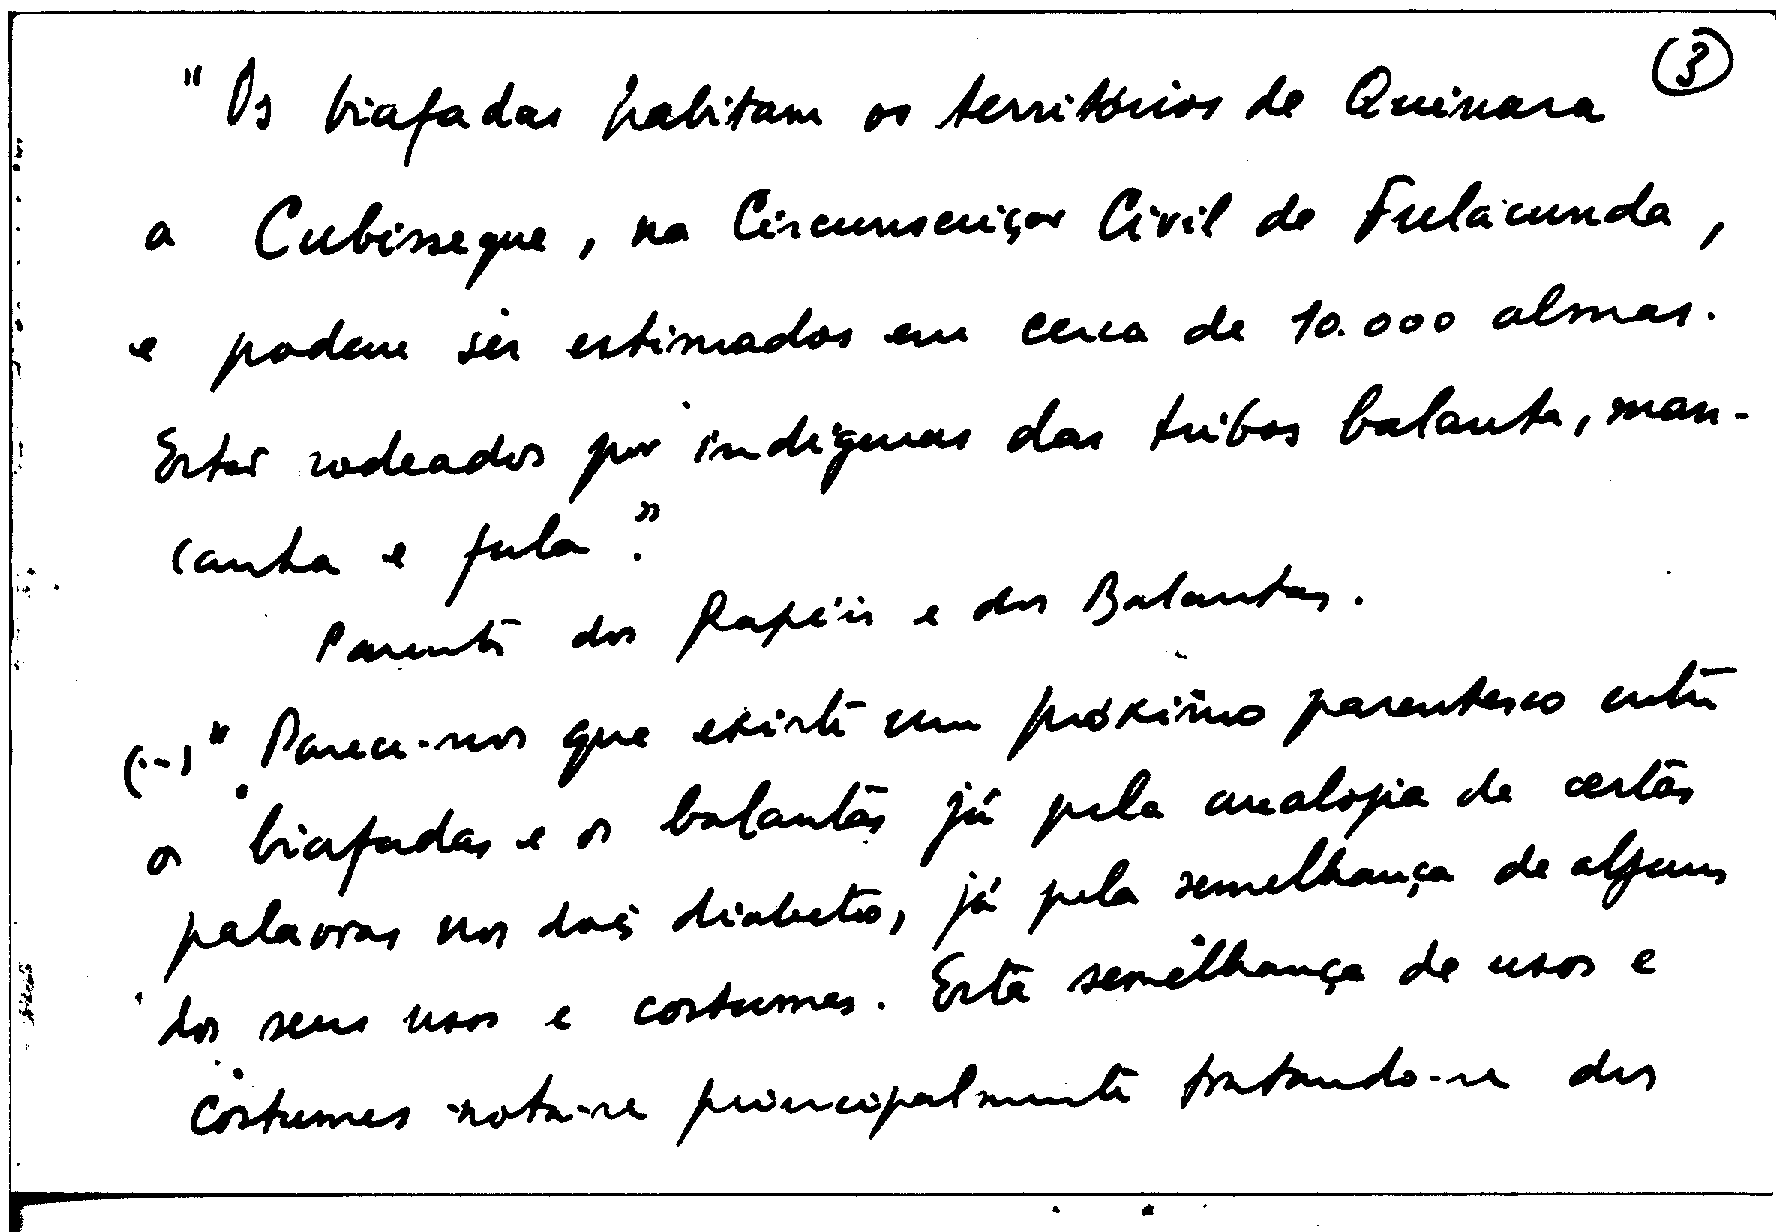 3
"Os biafadas habitam os territórios de Quinara
a Cubisseque, na Circunscrição Civil de Fulacunda,
e podem ser estimados em cerca de 10.000 almas.
Estão rodeados por indígenas das tribos balanta, man-
canha e fula."
Parente dos Papéis e dos Balantas.
(...) "Parece-nos que existe um próximo parentesco entre
os biafadas e os balantas já pela analogia de certas
palavras nos dois dialectos, já pela semelhança de alguns
dos seus usos e costumes. Esta semelhança de usos e
costumes nota-se principalmente tratando-se dos